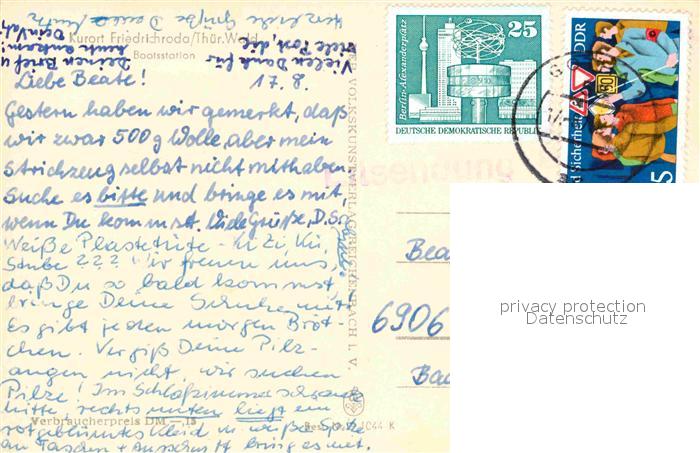 Herzliche Grüße Deine
Kurort Friedrichroda/Thür. Wald
Bootsstation
Vielen Dank für
viele Post, die
Deinen Brief u.
heute ankam!
Dein Vati
17. 8.
Liebe Beate!
Gestern haben wir gemerkt, daß
wir zwar 500 g Wolle, aber mein
Strickzeug selbst nicht mithaben.
Suche es bitte und bringe es mit,
wenn Du kommst. Viele Grüße, D. S.
Weiße Plastetüte - Ki Zi, Kü,
Stube ??? Wir freuen uns,
daß Du so bald kommst,
bringe Deine Schuhe mit!
Es gibt jeden morgen Bröt-
chen. Vergiß Deine Pilz-
augen nicht, wir suchen
Pilze! Im Schlafzimmerschrank
bitte, rechts unten liegt ein
rotgeblümtes Kleid m. weißer Spitze
an Taschen + Ausschnitt bring es mit.
Verbraucherpreis DM —,15
VOLKSKUNSTVERLAG REICHENBACH I. V.
1044 K
25
Berlin-Alexanderplatz
DEUTSCHE DEMOKRATISCHE REPUBLIK
DDR
und Sicherheit
90
5
Bea
6906
Bad
privacy protection
Datenschutz